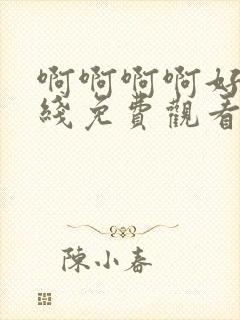 啊啊啊啊好
綫免費觀看
陳小春